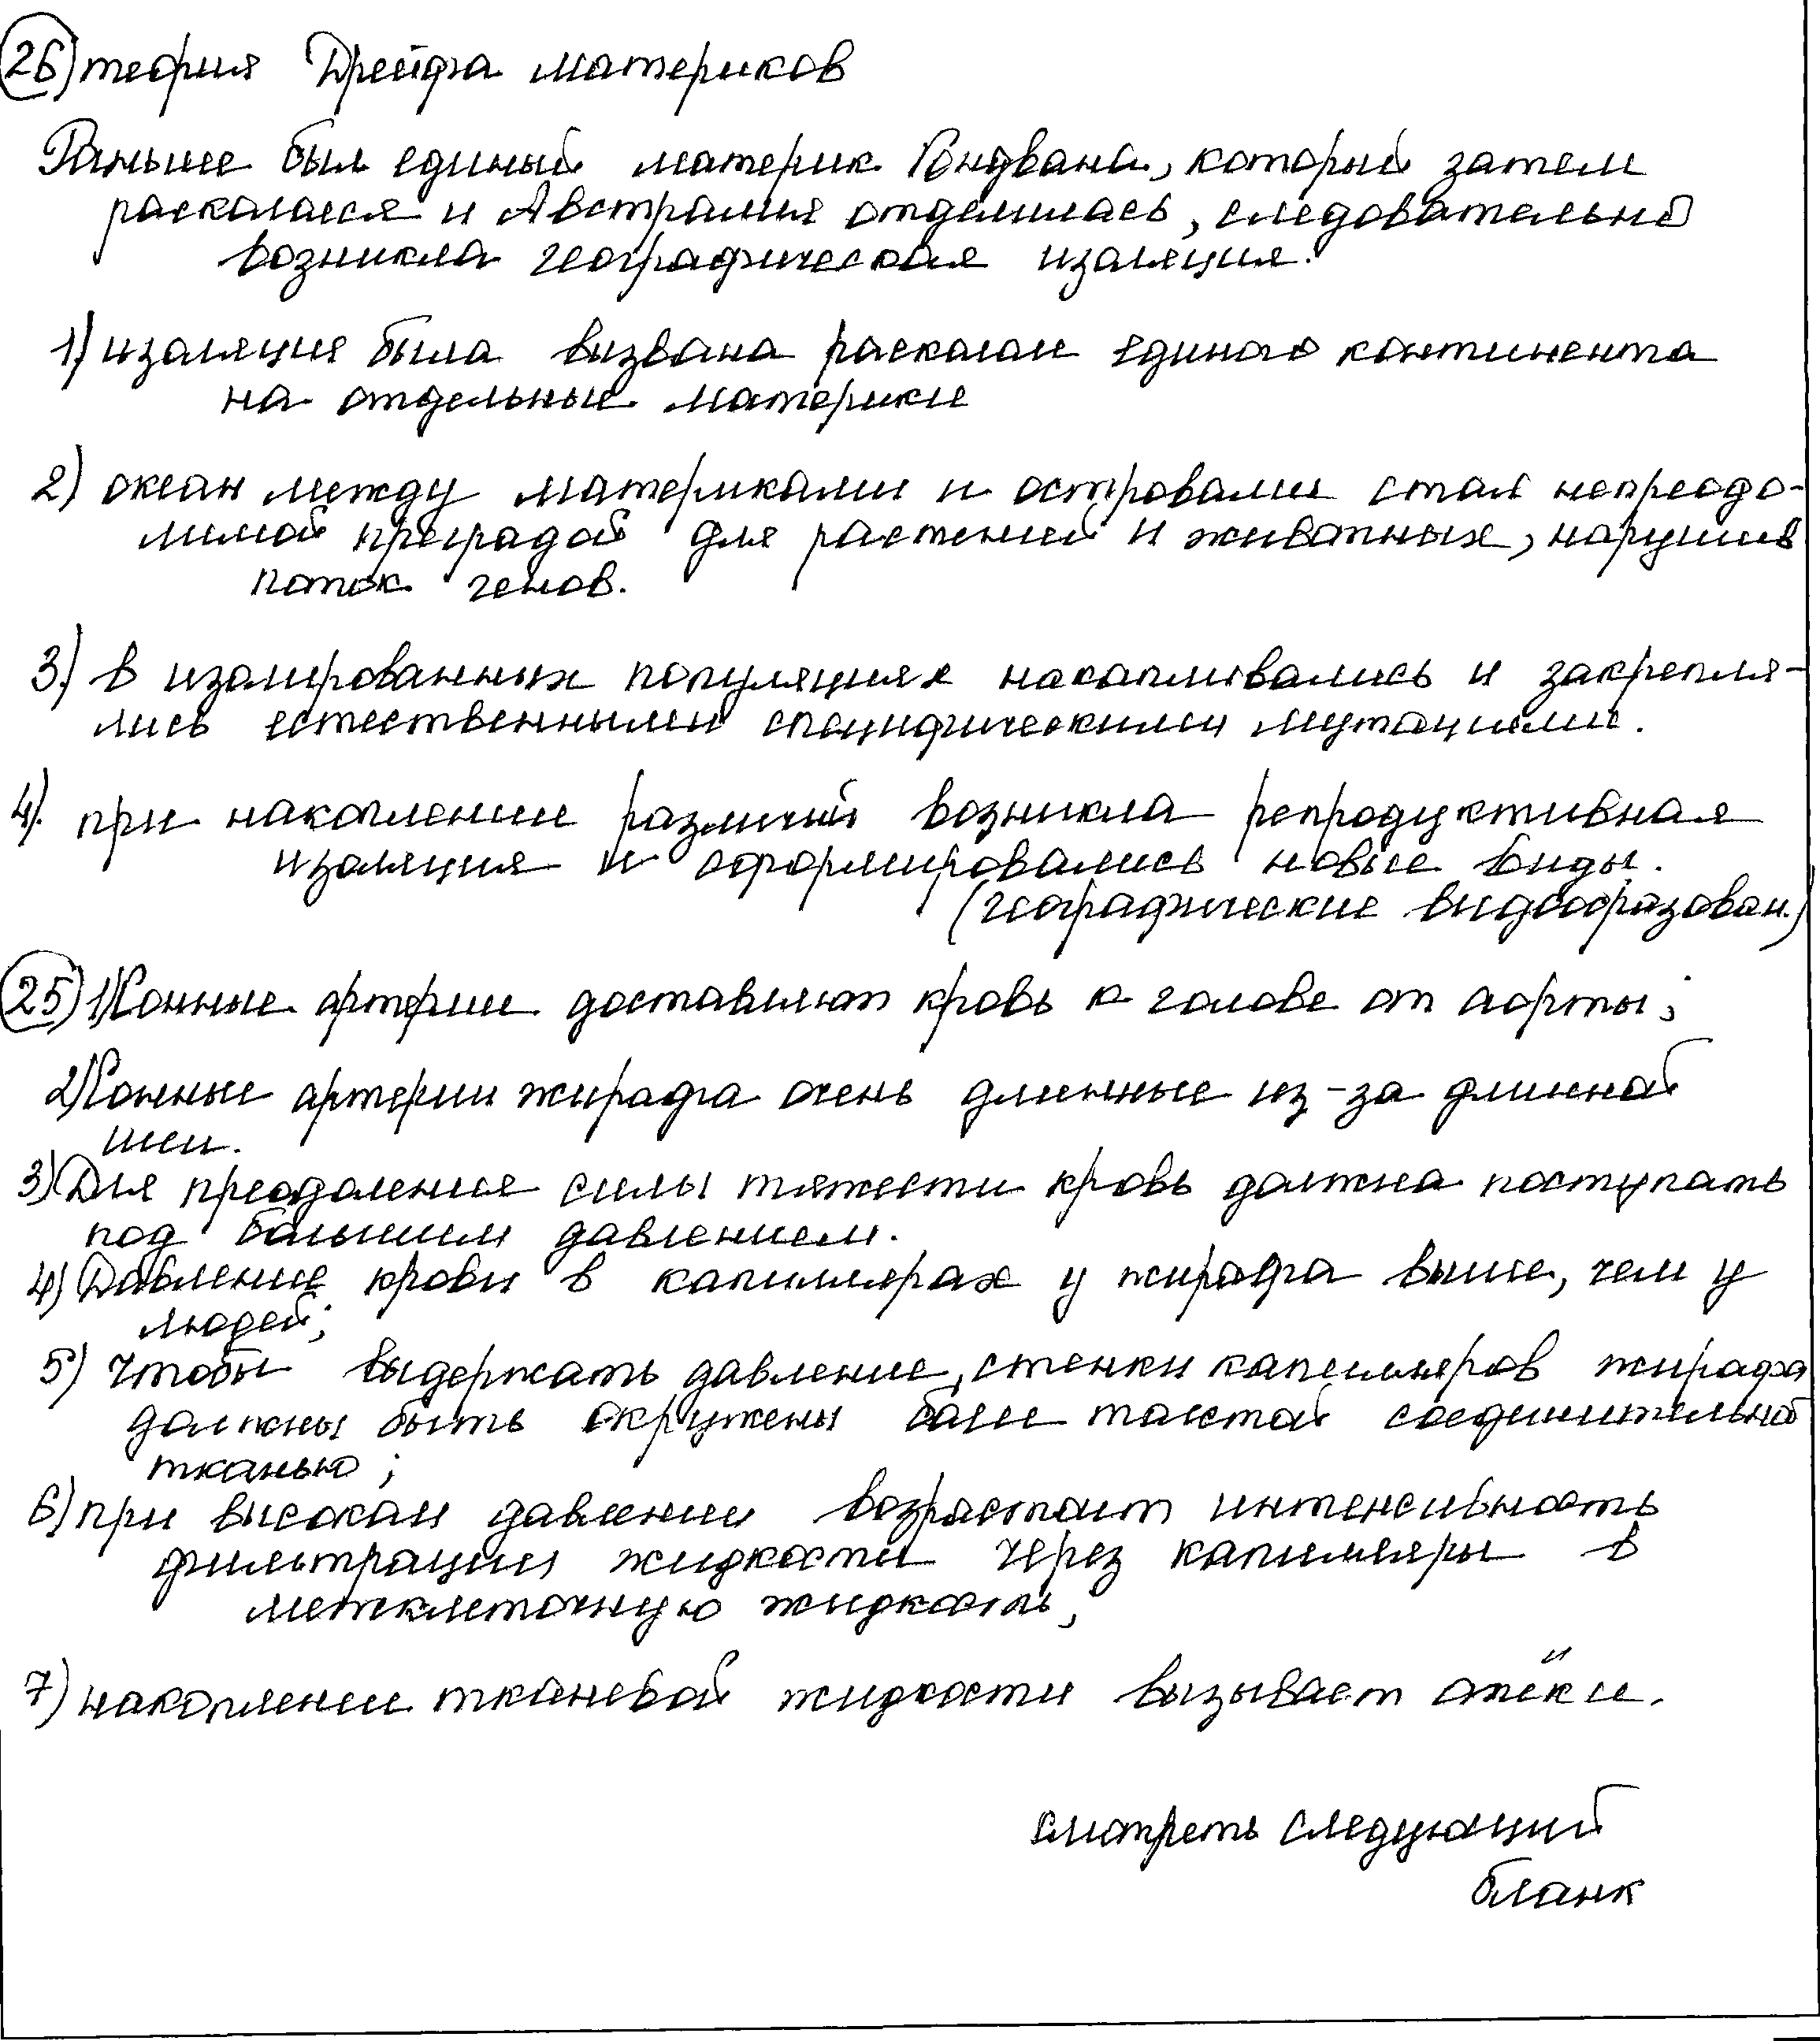 26) теория Дрейфа материков
Раньше был единый материк Гондвана, который затем
раскалася и Австралия отделилась, следовательно
возникла географическая изаляция.
1) изаляция была вызвана раскалом единого континента
на отдельные материки
2) океан между материками и островами стал непреодо-
лимой преградой для растений и животных, нарушив
поток генов.
3) в изолированных популяциях накапливались и закрепля-
лись естественными специфическими мутациями.
4) при накоплении различий возникла репродуктивная
изаляция и сформировались новые виды.
(географические видообразован.)
25) 1) Сонные артерии доставляют кровь к голове от аорты;
2) Сонные артерии жирафа очень длинные из-за длинной
шеи.
3) Для преодоления силы тяжести кровь должна поступать
под большим давлением.
4) Давление крови в капиллярах у жирафа выше, чем у
людей;
5) Чтобы выдержать давление, стенки капилляров жирафа
должны быть окружены более толстой соединительной
тканью;
6) при высоком давлении возрастает интенсивность
фильтрации жидкости через капилляры в
межклеточную жидкость,
7) накоплении тканевой жидкости вызывает отёки.
Смотреть следующий
бланк